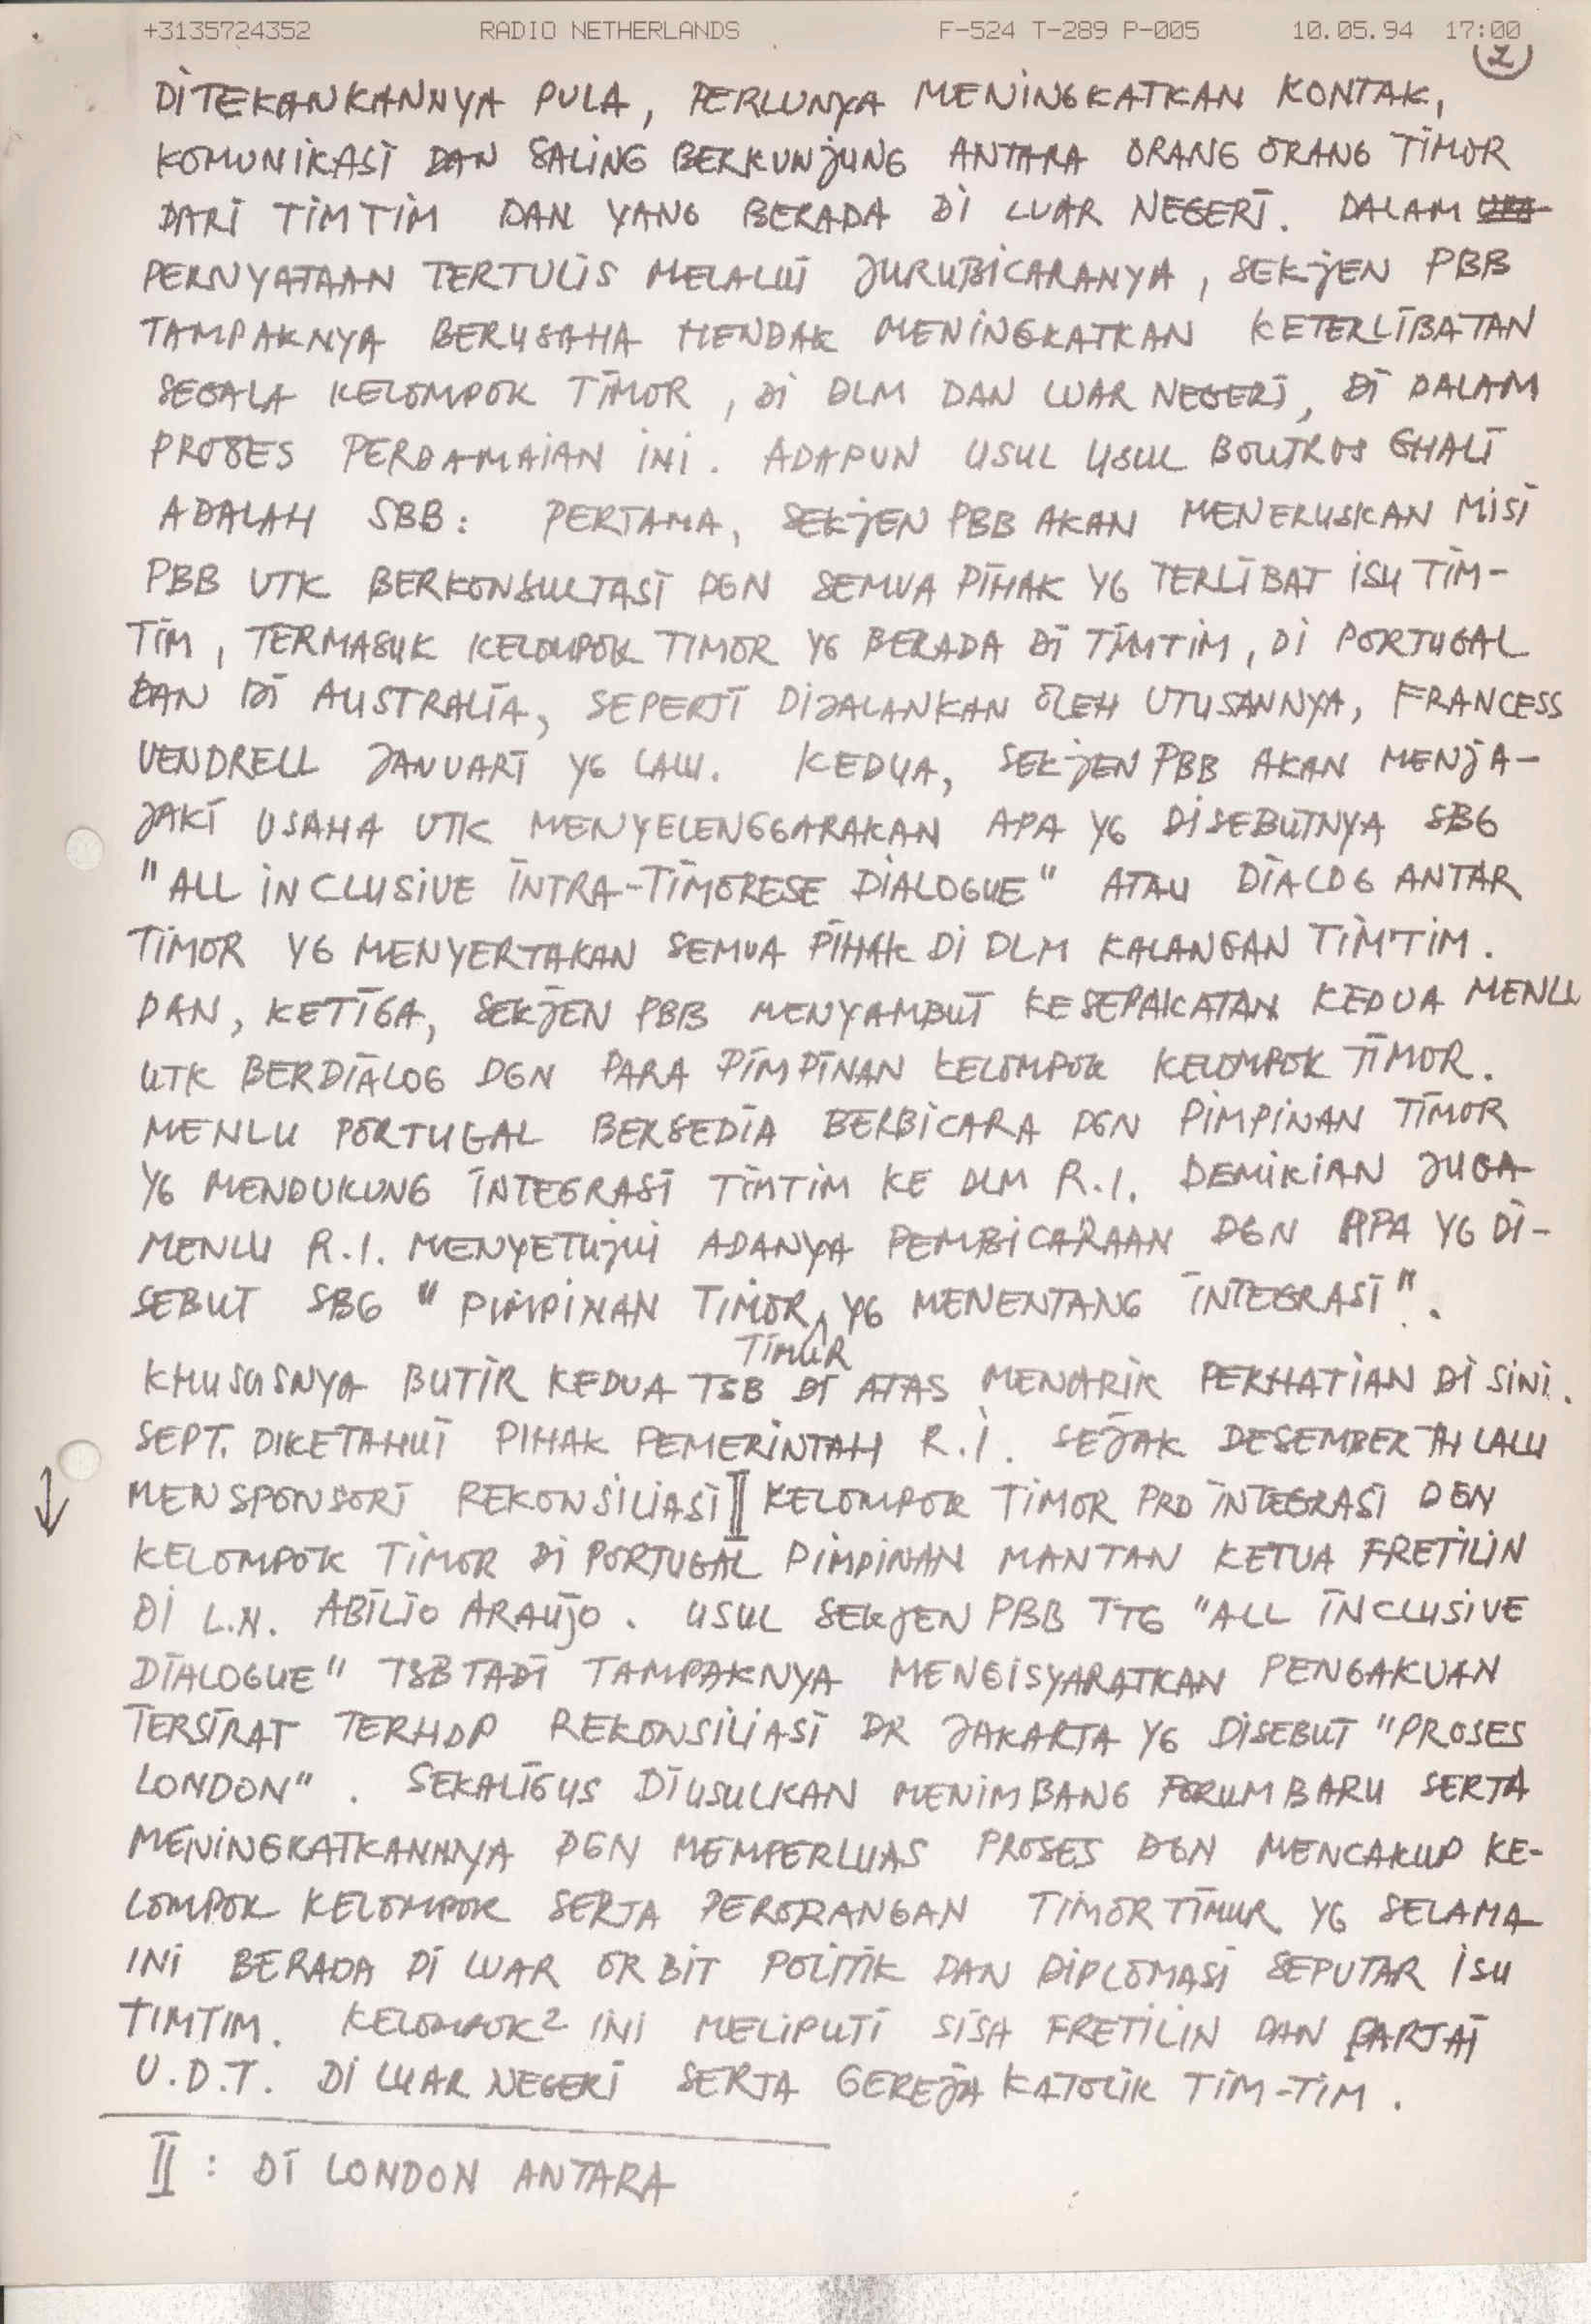 +3135724352 RADIO NETHERLANDS F-524 T-289 P-005 10.05.94 17:00
2
DITEKANKANNYA PULA, PERLUNYA MENINGKATKAN KONTAK,
KOMUNIKASI DAN SALING BERKUNJUNG ANTARA ORANG ORANG TIMOR
DARI TIMTIM DAN YANG BERADA DI LUAR NEGERI. DALAM
PERNYATAAN TERTULIS MELALUI JURUBICARANYA, SEKJEN PBB
TAMPAKNYA BERUSAHA HENDAK MENINGKATKAN KETERLIBATAN
SEGALA KELOMPOK TIMOR, DI DLM DAN LUAR NEGERI, DI DALAM
PROSES PERDAMAIAN INI. ADAPUN USUL USUL BOUTROS GHALI
ADALAH SBB: PERTAMA, SEKJEN PBB AKAN MENERUSKAN MISI
PBB UTK BERKONSULTASI DGN SEMUA PIHAK YG TERLIBAT ISU TIM-
TIM, TERMASUK KELOMPOK TIMOR YG BERADA DI TIMTIM, DI PORTUGAL
DAN DI AUSTRALIA, SEPERTI DIJALANKAN OLEH UTUSANNYA, FRANCESS
VENDRELL JANUARI YG LALU. KEDUA, SEKJEN PBB AKAN MENJA-
JAKI USAHA UTK MENYELENGGARAKAN APA YG DISEBUTNYA SBG
"ALL INCLUSIVE INTRA-TIMORESE DIALOGUE" ATAU DIALOG ANTAR
TIMOR YG MENYERTAKAN SEMUA PIHAK DI DLM KALANGAN TIMTIM.
DAN, KETIGA, SEKJEN PBB MENYAMBUT KESEPAKATAN KEDUA MENLU
UTK BERDIALOG DGN PARA PIMPINAN KELOMPOK KELOMPOK TIMOR.
MENLU PORTUGAL BERSEDIA BERBICARA DGN PIMPINAN TIMOR
YG MENDUKUNG INTEGRASI TIMTIM KE DLM R.I. DEMIKIAN JUGA
MENLU R.I. MENYETUJUI ADANYA PEMBICARAAN DGN APA YG DI-
SEBUT SBG "PIMPINAN TIMOR YG MENENTANG INTEGRASI".
TIMUR
KHUSUSNYA BUTIR KEDUA TSB DI ATAS MENARIK PERHATIAN DI SINI.
SEPT. DIKETAHUI PIHAK PEMERINTAH R.I. SEJAK DESEMBER TH LALU
MENSPONSORI REKONSILIASI II KELOMPOK TIMOR PRO INTEGRASI DGN
KELOMPOK TIMOR DI PORTUGAL PIMPINAN MANTAN KETUA FRETILIN
DI L.N. ABILIO ARAUJO. USUL SEKJEN PBB TTG "ALL INCLUSIVE
DIALOGUE" TSB TADI TAMPAKNYA MENGISYARATKAN PENGAKUAN
TERSIRAT TERHDP REKONSILIASI DR JAKARTA YG DISEBUT "PROSES
LONDON". SEKALIGUS DIUSULKAN MENIMBANG FORUM BARU SERTA
MENINGKATKANNYA DGN MEMPERLUAS PROSES DGN MENCAKUP KE-
LOMPOK KELOMPOK SERTA PERORANGAN TIMOR TIMUR YG SELAMA
INI BERADA DI LUAR ORBIT POLITIK DAN DIPLOMASI SEPUTAR ISU
TIMTIM. KELOMPOK² INI MELIPUTI SISA FRETILIN DAN PARTAI
U.D.T. DI LUAR NEGERI SERTA GEREJA KATOLIK TIM-TIM.
II : DI LONDON ANTARA